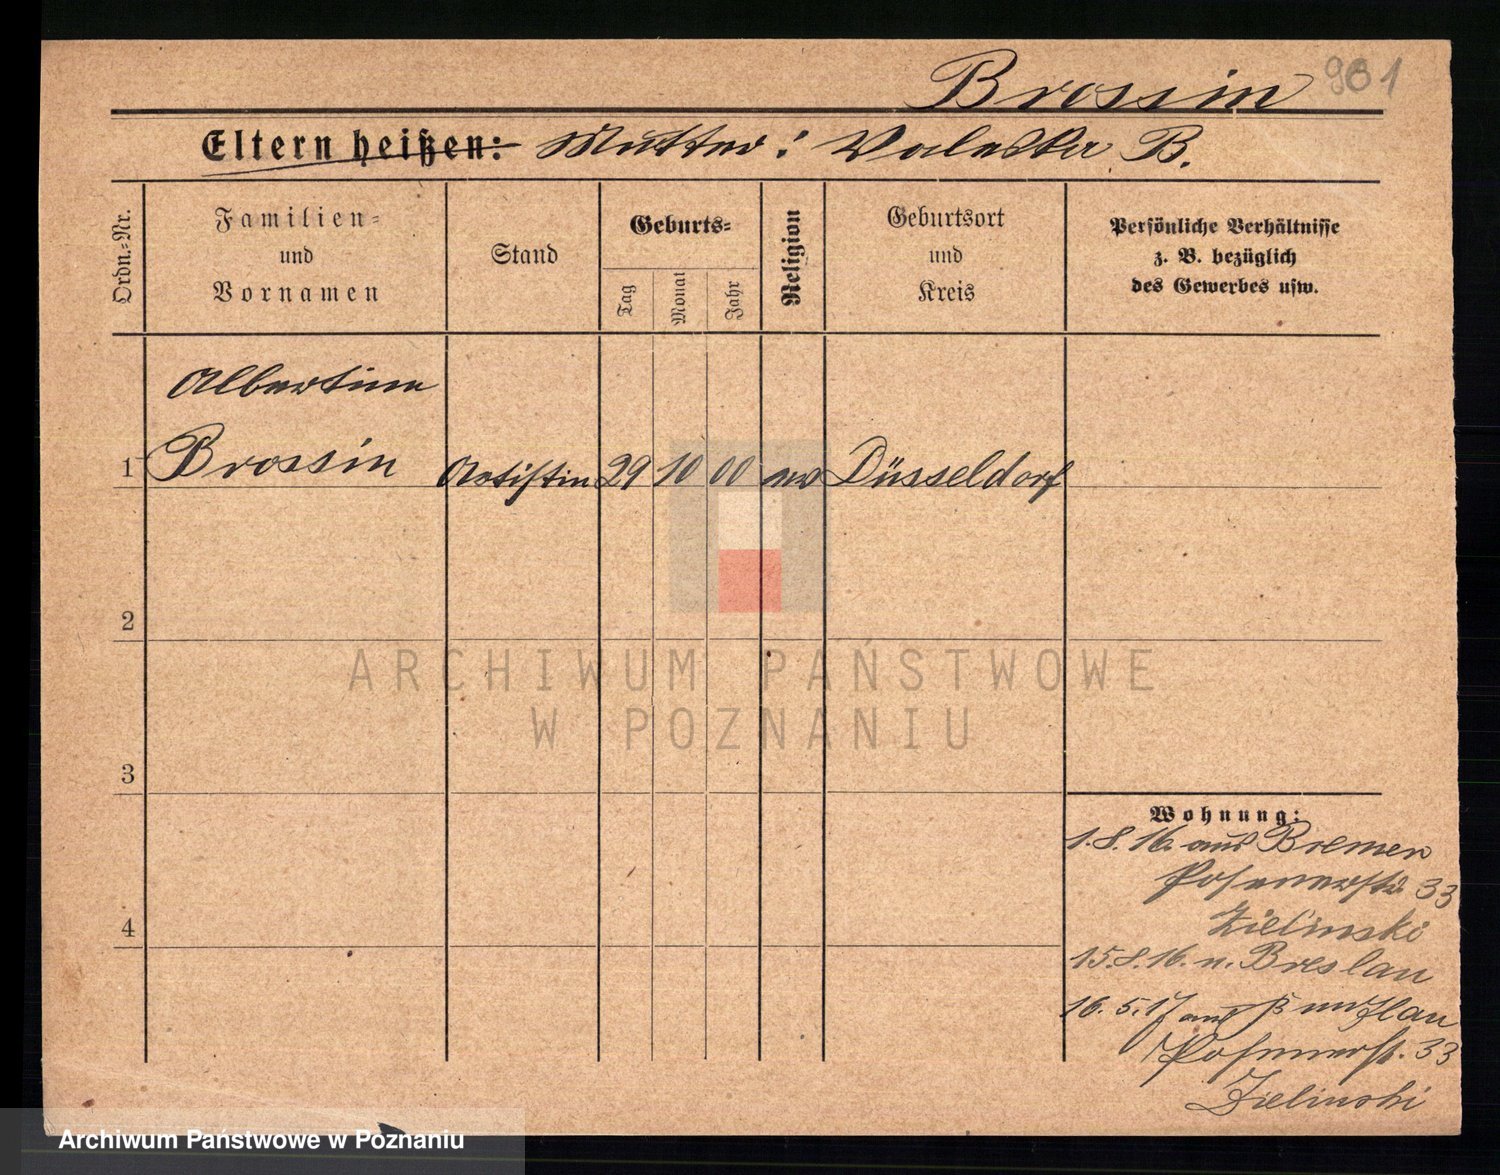 Brossin 901
Eltern heißen: Mutter: Valeska B.
Ordn.-Nr.
Familien-
und
Vornamen
Stand
Geburts-
Tag
Monat
Jahr
Religion
Geburtsort
und
Kreis
Persönliche Verhältnisse
z. B. bezüglich
des Gewerbes usw.
Albertine
1 Brossin Artistin 29 10 00 ev Düsseldorf
2
3
4
Wohnung:
1.8.16. aus Bremen
Posenerstr 33
Zielinski
15.8.16. n. Breslau
16.5.17 aus Bunzlau
Posenerst. 33
Zielinski
ARCHIWUM PAŃSTWOWE
W POZNANIU
Archiwum Państwowe w Poznaniu